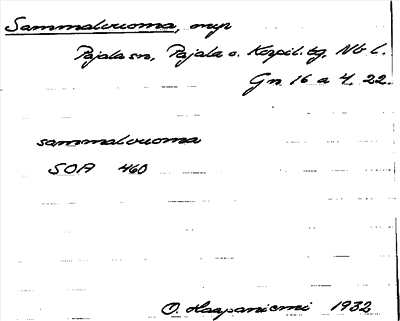 Sammalvuoma, myr
Pajala sn, Pajala o. Korpil. tg, Nb l.
Gn 16 a 4, 22.
sammalvuoma
SOA 460
O. Haapaniemi 1932